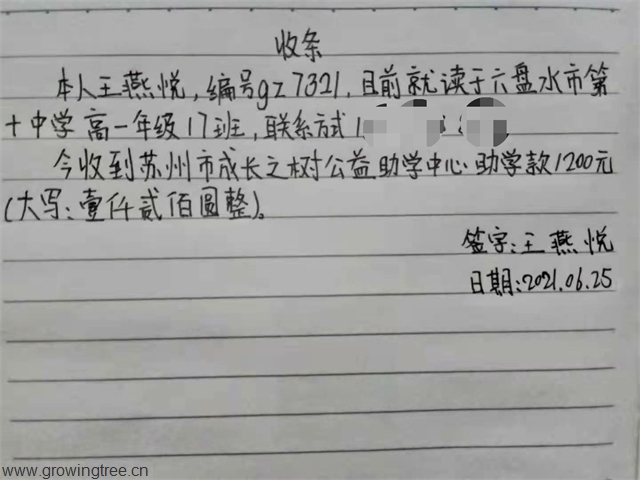 收条
本人王燕悦,编号gz7321,目前就读于六盘水市第
十中学高一年级17班,联系方式1
今收到苏州市成长之树公益助学中心助学款1200元
(大写:壹仟贰佰圆整)。
签字:王燕悦
日期:2021.06.25
www.growingtree.cn